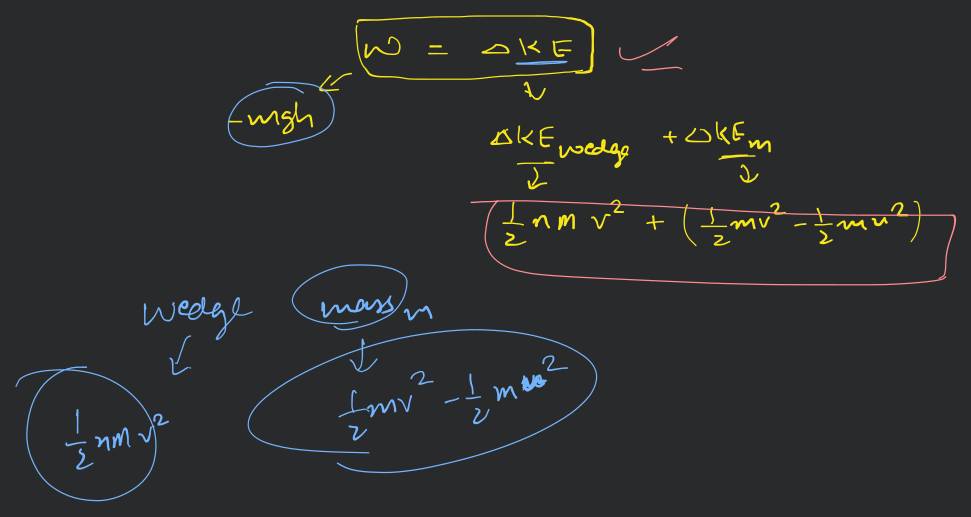 W = ΔKE
-mgh
ΔKE wedge + ΔKE m
1/2 nm v² + (1/2 mv² - 1/2 mu²)
wedge mass m
1/2 nm v² 1/2 mv² - 1/2 mu²